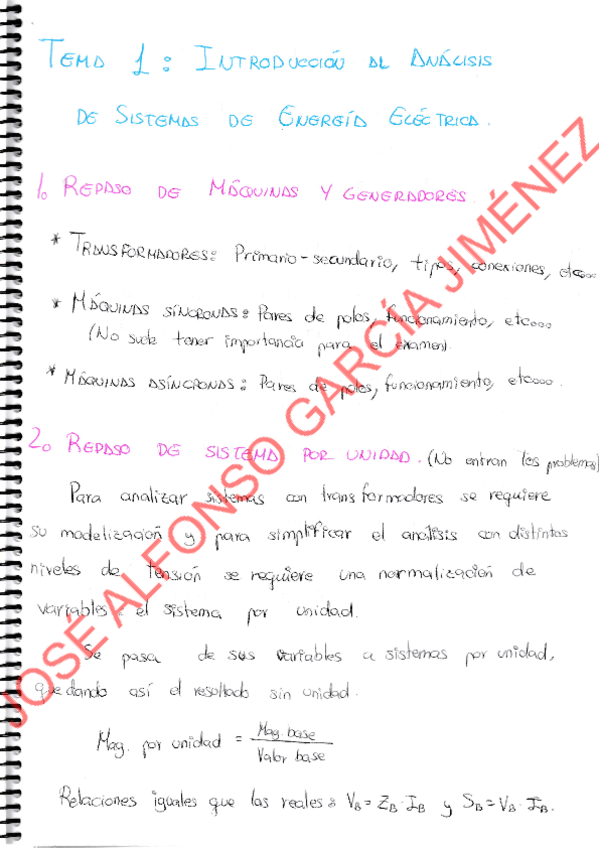 TEMA 1: INTRODUCCIÓN AL ANÁLISIS
DE SISTEMAS DE ENERGÍA ELÉCTRICA.
1. REPASO DE MÁQUINAS Y GENERADORES
* TRANSFORMADORES: Primario-secundario, tipos, conexiones, etc...
* MÁQUINAS SÍNCRONAS: Pares de polos, funcionamiento, etc...
(No suele tener importancia para el examen).
* MÁQUINAS ASÍNCRONAS: Pares de polos, funcionamiento, etc....
2. REPASO DE SISTEMA POR UNIDAD. (No entran los problemas)
Para analizar sistemas con transformadores se requiere
su modelización y para simplificar el análisis con distintos
niveles de tensión se requiere una normalización de
variables: el sistema por unidad.
Se pasa de sus variables a sistemas por unidad,
quedando así el resultado sin unidad.
Mag. por unidad = Mag. base / Valor base
Relaciones iguales que las reales: V_B = Z_B · I_B y S_B = V_B · I_B.
JOSÉ ALFONSO GARCÍA JIMÉNEZ